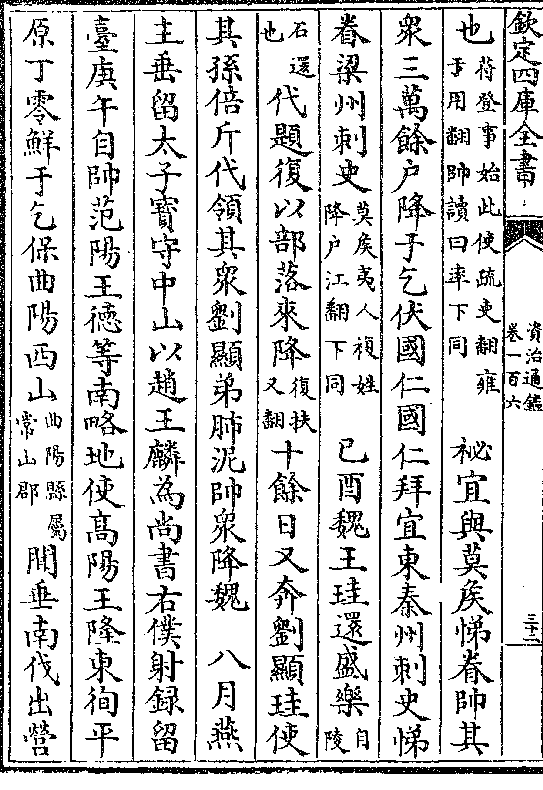 欽定四庫全書
資治通鑑
卷一百六
三十二
也苻登事始此使疏吏翻雍于用翻帥讀曰率下同 祕宜與莫矦悌眷帥其
衆三萬餘户降于乞伏國仁國仁拜宜東秦州刺史悌
眷梁州刺史莫矦夷人複姓降户江翻下同 己酉魏王珪還盛樂自陵
石還也代題復以部落來降復扶又翻十餘日又奔劉顯珪使
其孫倍斤代領其衆劉顯弟肺泥帥衆降魏 八月燕
主垂留太子寶守中山以趙王麟為尚書右僕射録留
臺庚午自帥范陽王徳等南略地使髙陽王隆東徇平
原丁零鮮于乞保曲陽西山曲陽縣屬常山郡聞垂南伐出營